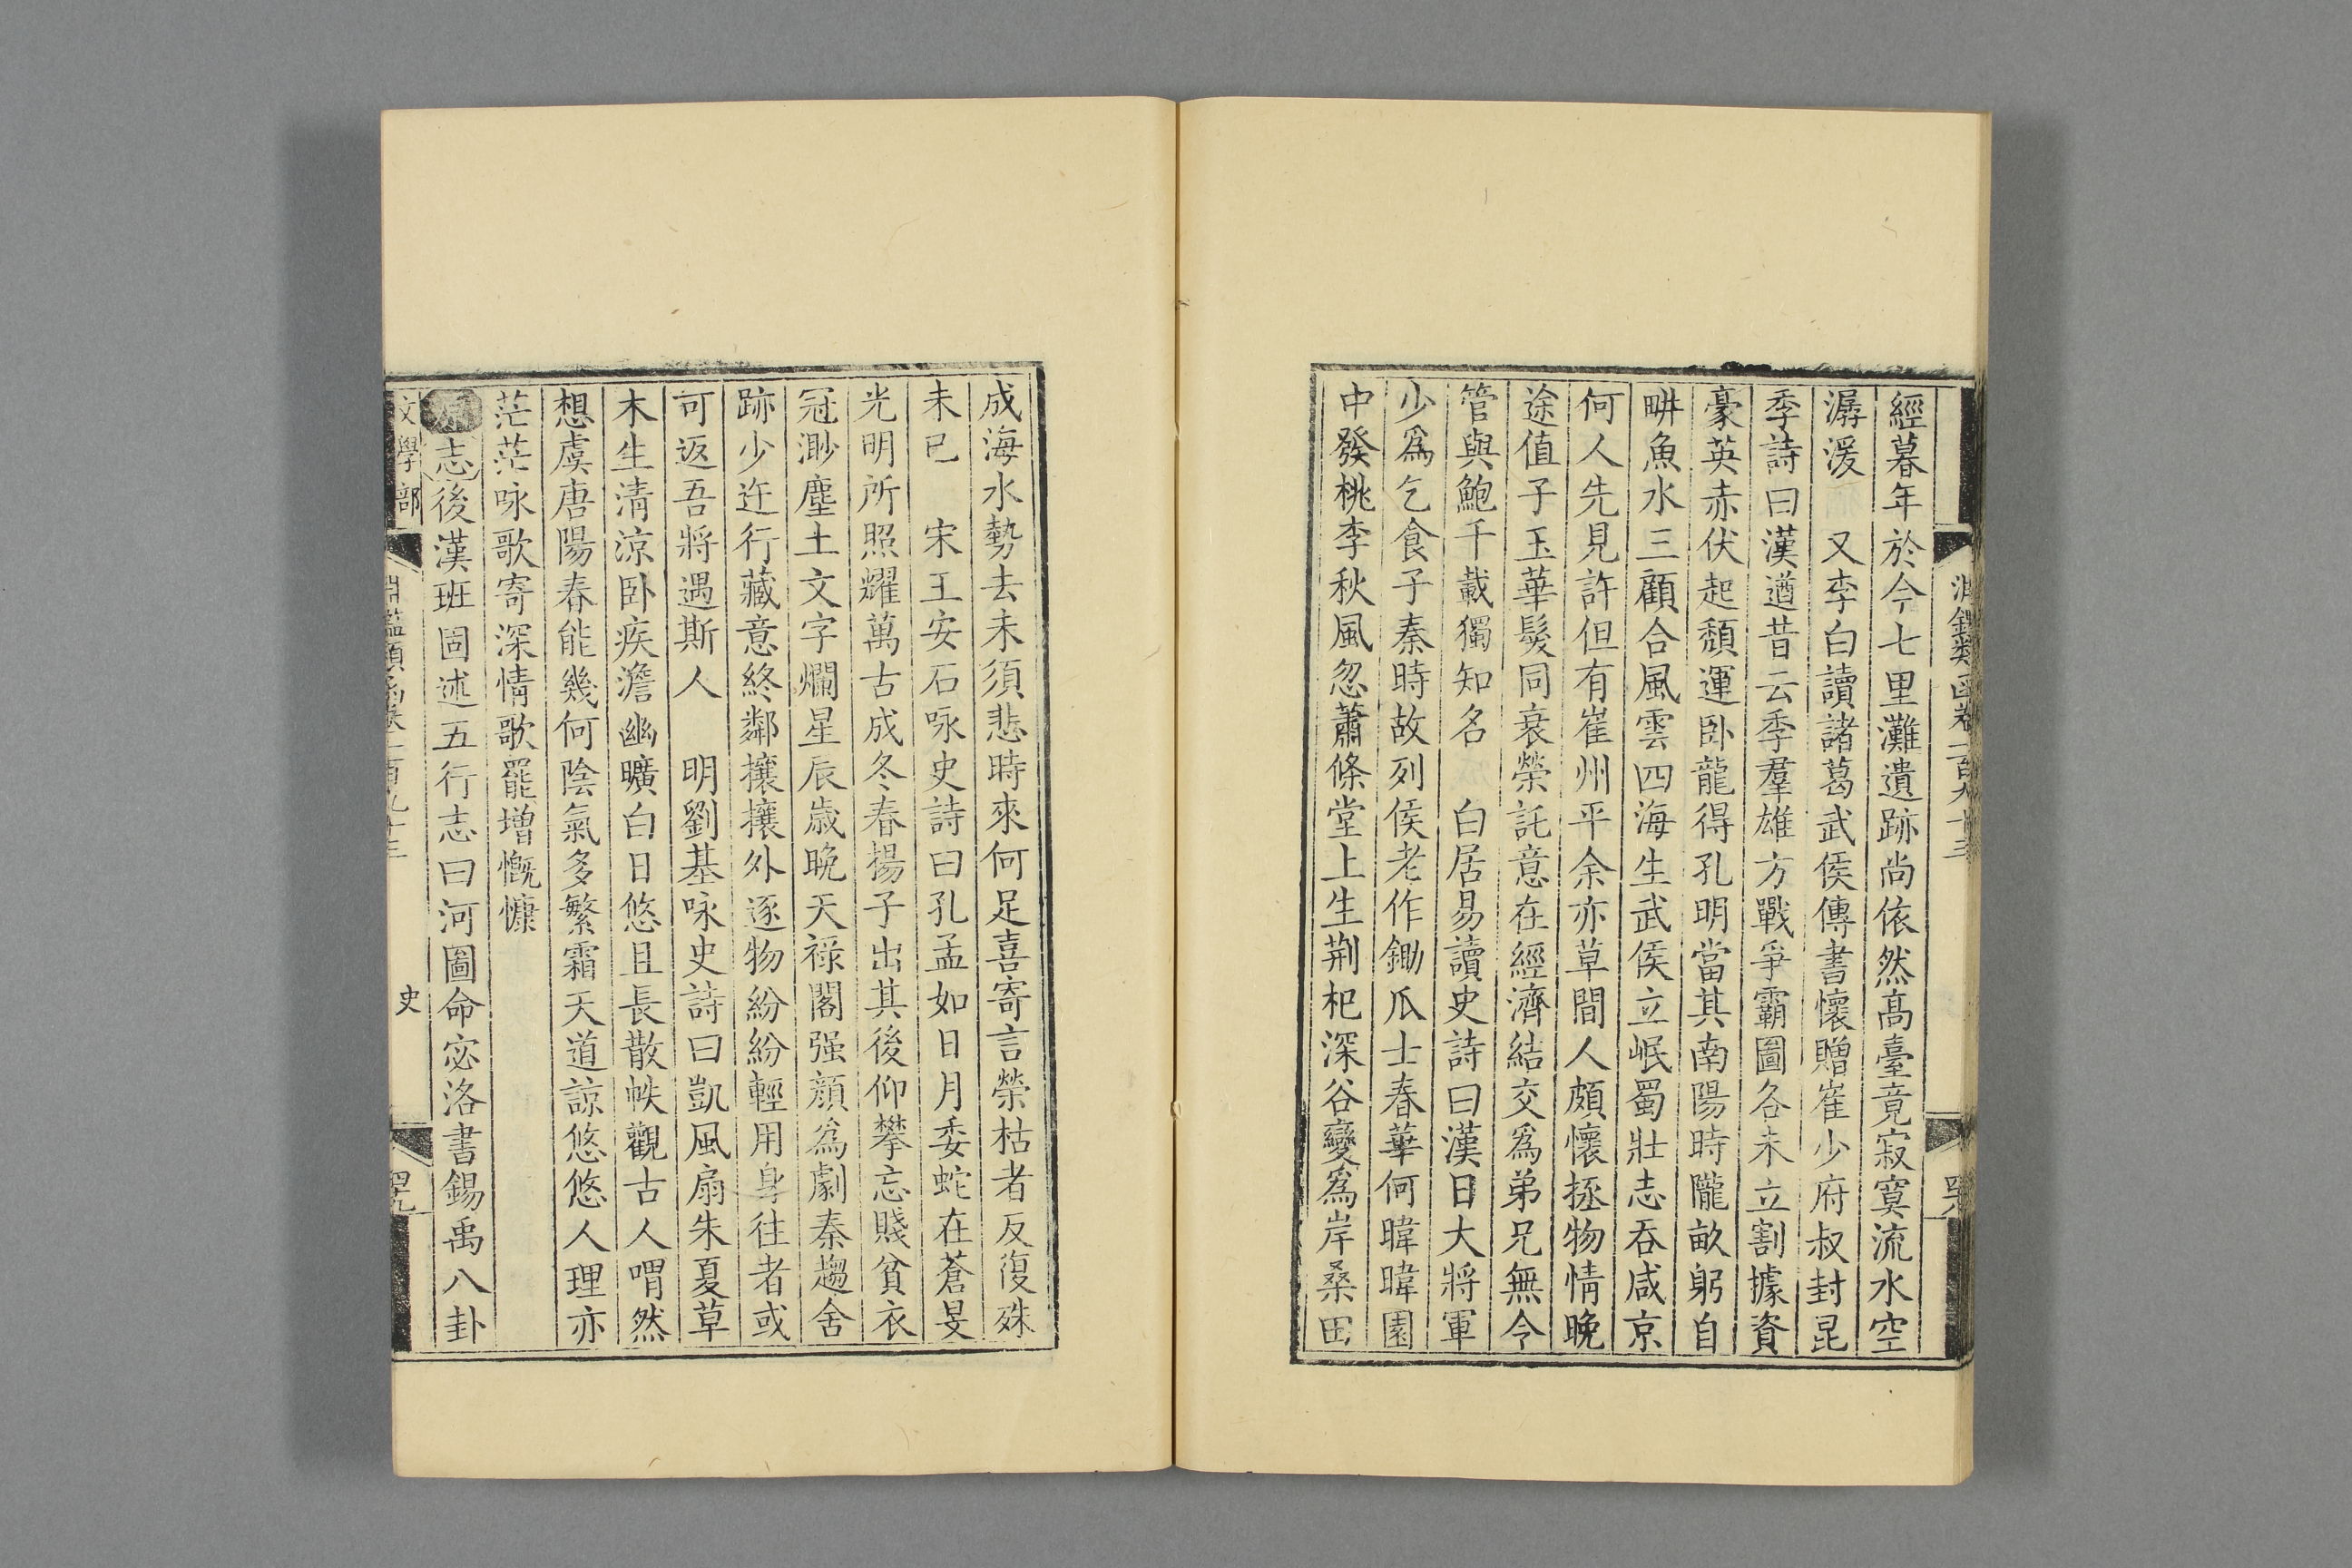 經暮年於今七里灘遺跡尚依然高臺竟寂寞流水空
潺湲　又李白讀諸葛武侯傳書懷贈崔少府叔封昆
季詩曰漢遒昔云季羣雄方戰爭霸圖各未立割據資
豪英赤伏起頹運卧龍得孔明當其南陽時隴畝躬自
畊魚水三顧合風雲四海生武侯立岷蜀壯志吞咸京
何人先見許但有崔州平余亦草間人頗懷拯物情晚
途值子玉華髮同衰榮託意在經濟結交爲弟兄無令
管與鮑千載獨知名　白居易讀史詩曰漢日大將軍
少爲乞食子秦時故列侯老作鋤瓜士春華何暐暐園
中發桃李秋風忽蕭條堂上生荆杞深谷變爲岸桑田
成海水勢去未須悲時來何足喜寄言榮枯者反復殊
未已　宋王安石咏史詩曰孔孟如日月委蛇在蒼旻
光明所照耀萬古成冬春揚子出其後仰攀忘賤貧衣
冠渺塵土文字爛星辰歲晚天祿閣强顏爲劇秦趨舍
跡少迕行藏意終鄰攘攘外逐物紛紛輕用身往者或
可返吾將遇斯人　明劉基咏史詩曰凱風扇朱夏草
木生清涼卧疾澹幽曠白日悠且長散帙觀古人喟然
想虞唐陽春能幾何陰氣多繁霜天道諒悠悠人理亦
茫茫咏歌寄深情歌罷增慨慷
志後漢班固述五行志曰河圖命宓洛書錫禹八卦
文學部　淵鑑類函卷一百九十三　史